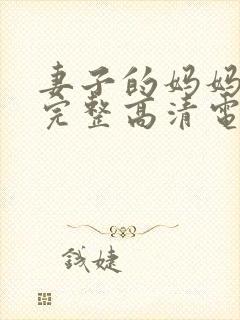 妻子的妈妈
完整高清电
钱婕